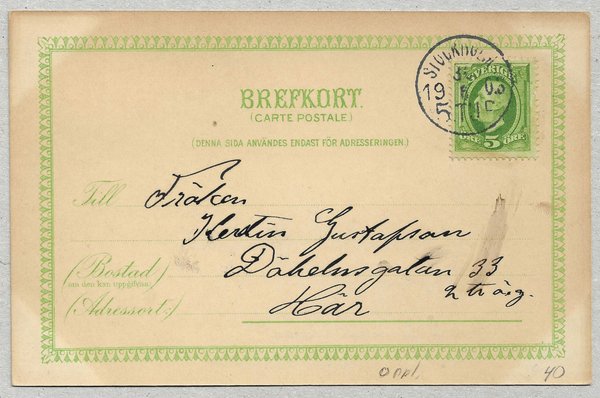 BREFKORT.
(CARTE POSTALE)
(DENNA SIDA ANVÄNDES ENDAST FÖR ADRESSERINGEN.)
STOCKHOLM
19 03
5 TUR
SVERIGE
ÖRE 5 ÖRE
Till Fröken
Kerstin Gustafson
(Bostad) Döbelnsgatan 33
om den kan uppgifvas 2 tr ö.g.
(Adressort:) Här
40